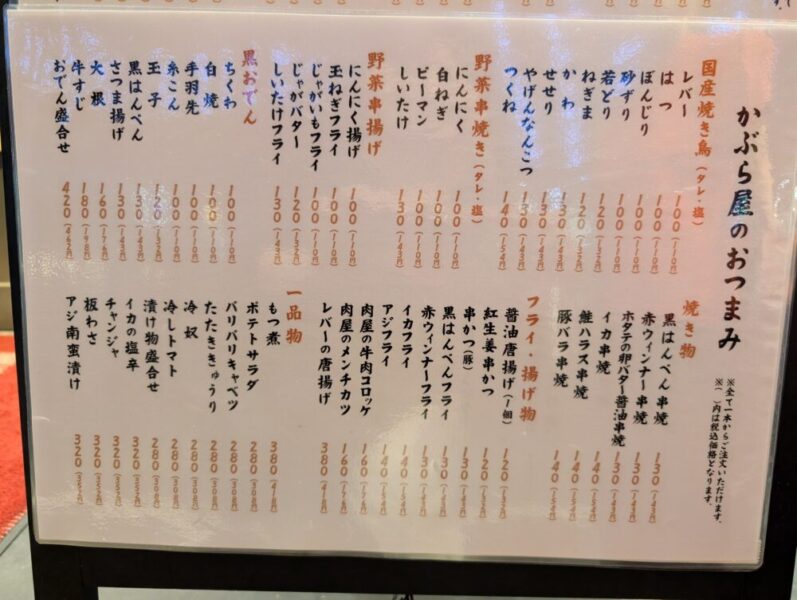 かぶら屋のおつまみ
※全て一本からご注文いただけます。
※( )内は税込価格となります。
国産焼き鳥(タレ・塩)
レバー 100(110円)
はつ 100(110円)
ぼんじり 100(110円)
砂ずり 100(110円)
若どり 120(132円)
ねぎま 120(132円)
かわ 130(143円)
せせり 130(143円)
やげんなんこつ 130(143円)
つくね 140(154円)
野菜串焼き(タレ・塩)
にんにく 100(110円)
白ねぎ 100(110円)
ピーマン 100(110円)
しいたけ 130(143円)
野菜串揚げ
にんにく揚げ 100(110円)
玉ねぎフライ 100(110円)
じゃがいもフライ 100(110円)
じゃがバター 120(132円)
しいたけフライ 130(143円)
黒おでん
ちくわ 100(110円)
白焼 100(110円)
手羽先 100(110円)
糸こん 100(110円)
玉子 120(132円)
黒はんぺん 130(143円)
さつま揚げ 130(143円)
大根 160(176円)
牛すじ 180(198円)
おでん盛合せ 420(462円)
焼き物
黒はんぺん串焼 130(143円)
赤ウィンナー串焼 130(143円)
ホタテの卵バター醤油串焼 130(143円)
イカ串焼 140(154円)
鮭ハラス串焼 140(154円)
豚バラ串焼 140(154円)
フライ・揚げ物
醤油唐揚げ(1個) 120(132円)
紅生姜串かつ 120(132円)
串かつ(豚) 130(143円)
黒はんぺんフライ 130(143円)
赤ウィンナーフライ 130(143円)
イカフライ 140(154円)
アジフライ 140(154円)
肉屋の牛肉コロッケ 160(176円)
肉屋のメンチカツ 160(176円)
レバーの唐揚げ 380(418円)
一品物
もつ煮 380(418円)
ポテトサラダ 280(308円)
バリバリキャベツ 280(308円)
たたききゅうり 280(308円)
冷奴 280(308円)
冷しトマト 280(308円)
漬け物盛合せ 280(308円)
イカの塩辛 320(352円)
チャンジャ 320(352円)
板わさ 320(352円)
アジ南蛮漬け 320(352円)